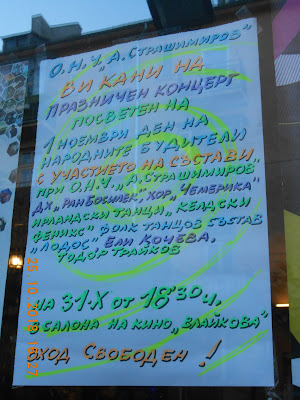 О.Н.Ч. „А. СТРАШИМИРОВ"
ВИ КАНИ НА
ПРАЗНИЧЕН КОНЦЕРТ
ПОСВЕТЕН НА
1 НОЕМВРИ ДЕН НА
НАРОДНИТЕ БУДИТЕЛИ
С УЧАСТИЕТО НА СЪСТАВИ
ПРИ О.Н.Ч. „А. СТРАШИМИРОВ"
ДХ „РАН БОСИЛЕК", ХОР „ЧЕМЕРИКА"
ИРЛАНДСКИ ТАНЦИ „КЕЛДСКИ
ФЕНИКС" ФОЛК ТАНЦОВ СЪСТАВ
„ЛОДОС", ЕЛИ КОЧЕВА,
ТОДОР ТРАЙКОВ
НА 31.X ОТ 18³⁰ ч.
В САЛОНА НА КИНО „ВЛАЙКОВА"
ВХОД СВОБОДЕН!